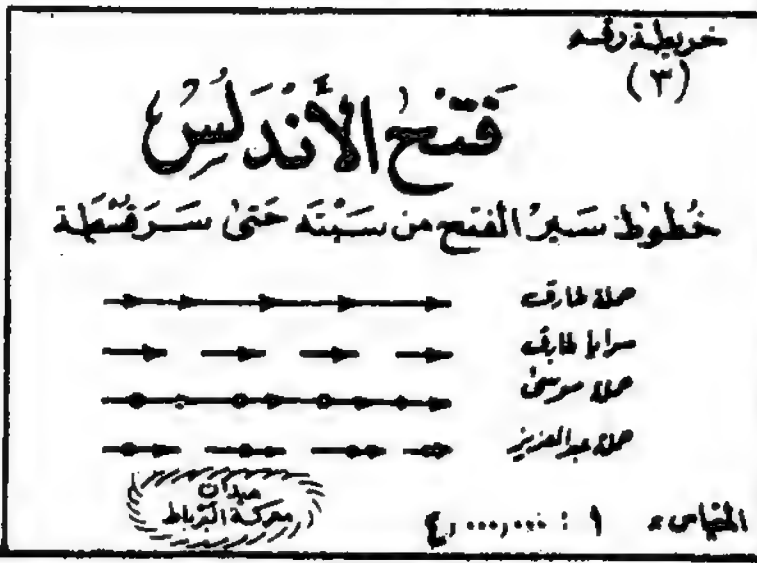 خريطة رقم
(٣)
فتح الأندلس
خطوط سير الفتح من سبتة حتى سرقسطة
حملة طارق
سرايا طارق
حملة موسى
حملة عبدالعزيز
ميدان
معركة البرباط
المقياس = ١ : ٤,٠٠٠,٠٠٠